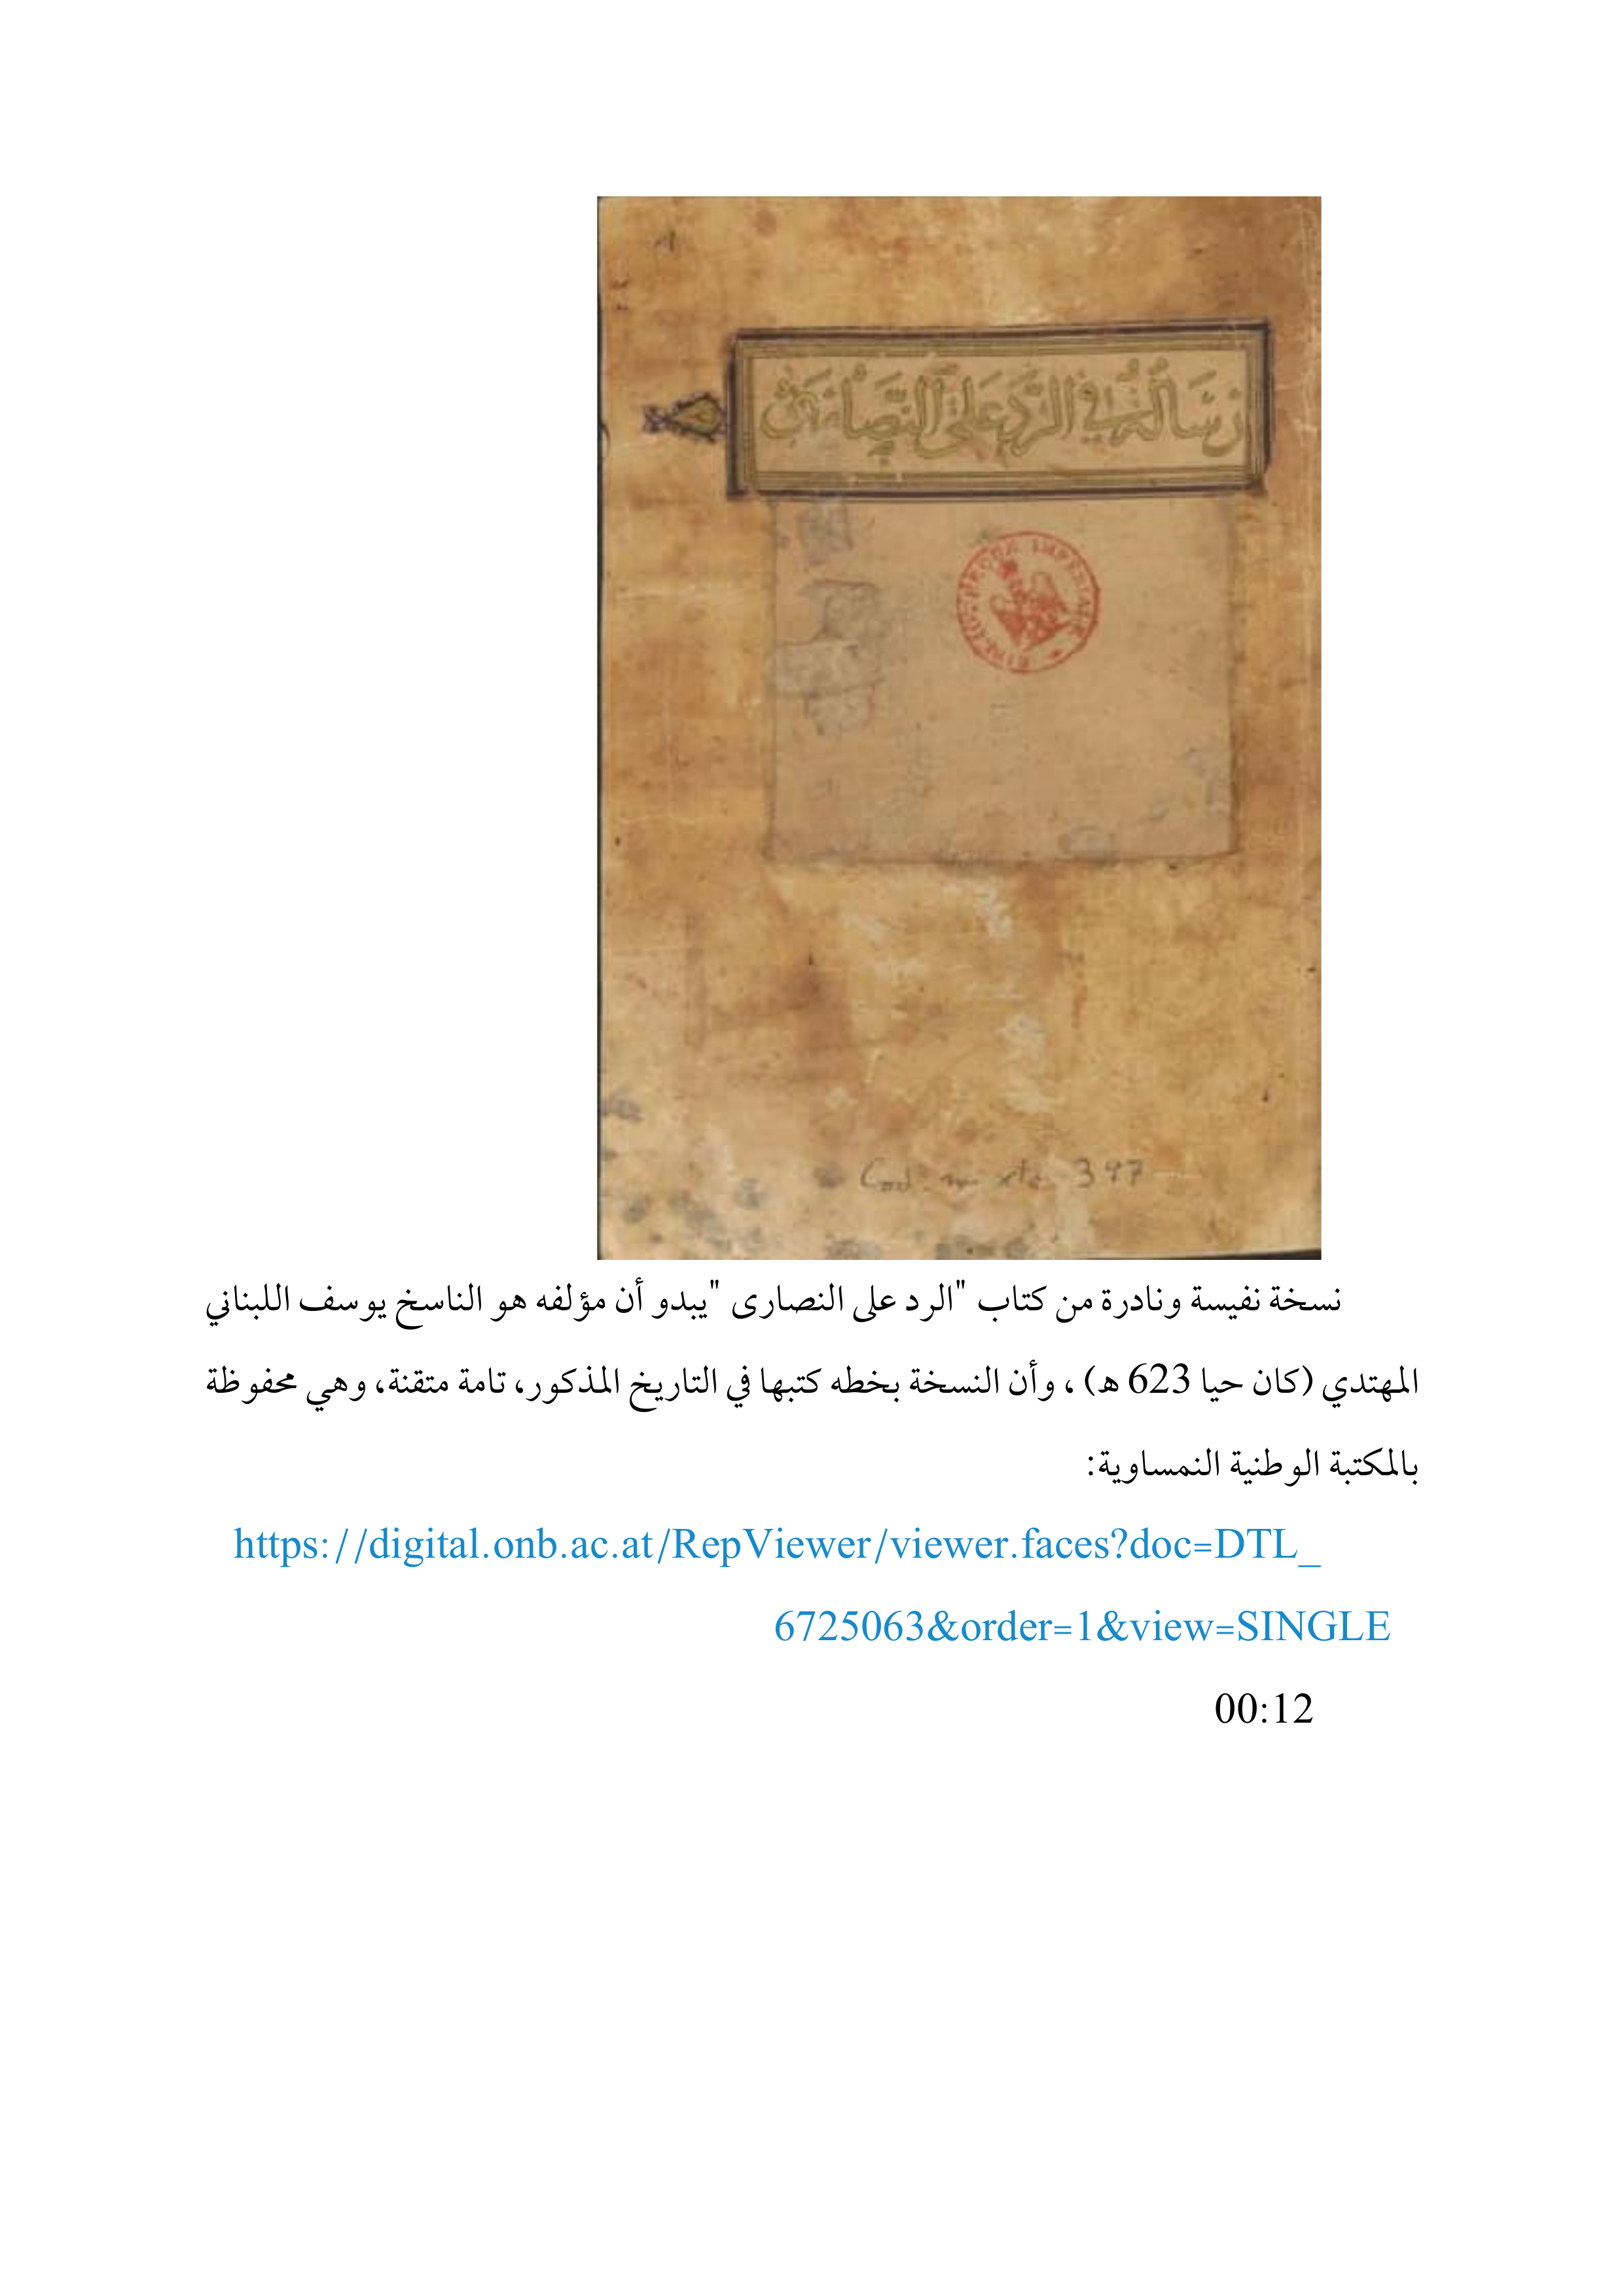 رسالة في الرد على النصارى
Cod. mixt. 397
نسخة نفيسة ونادرة من كتاب "الرد على النصارى "يبدو أن مؤلفه هو الناسخ يوسف اللبناني
المهتدي (كان حيا 623 ه) ، وأن النسخة بخطه كتبها في التاريخ المذكور، تامة متقنة، وهي محفوظة
بالمكتبة الوطنية النمساوية:
https://digital.onb.ac.at/RepViewer/viewer.faces?doc=DTL_
6725063&order=1&view=SINGLE
00:12